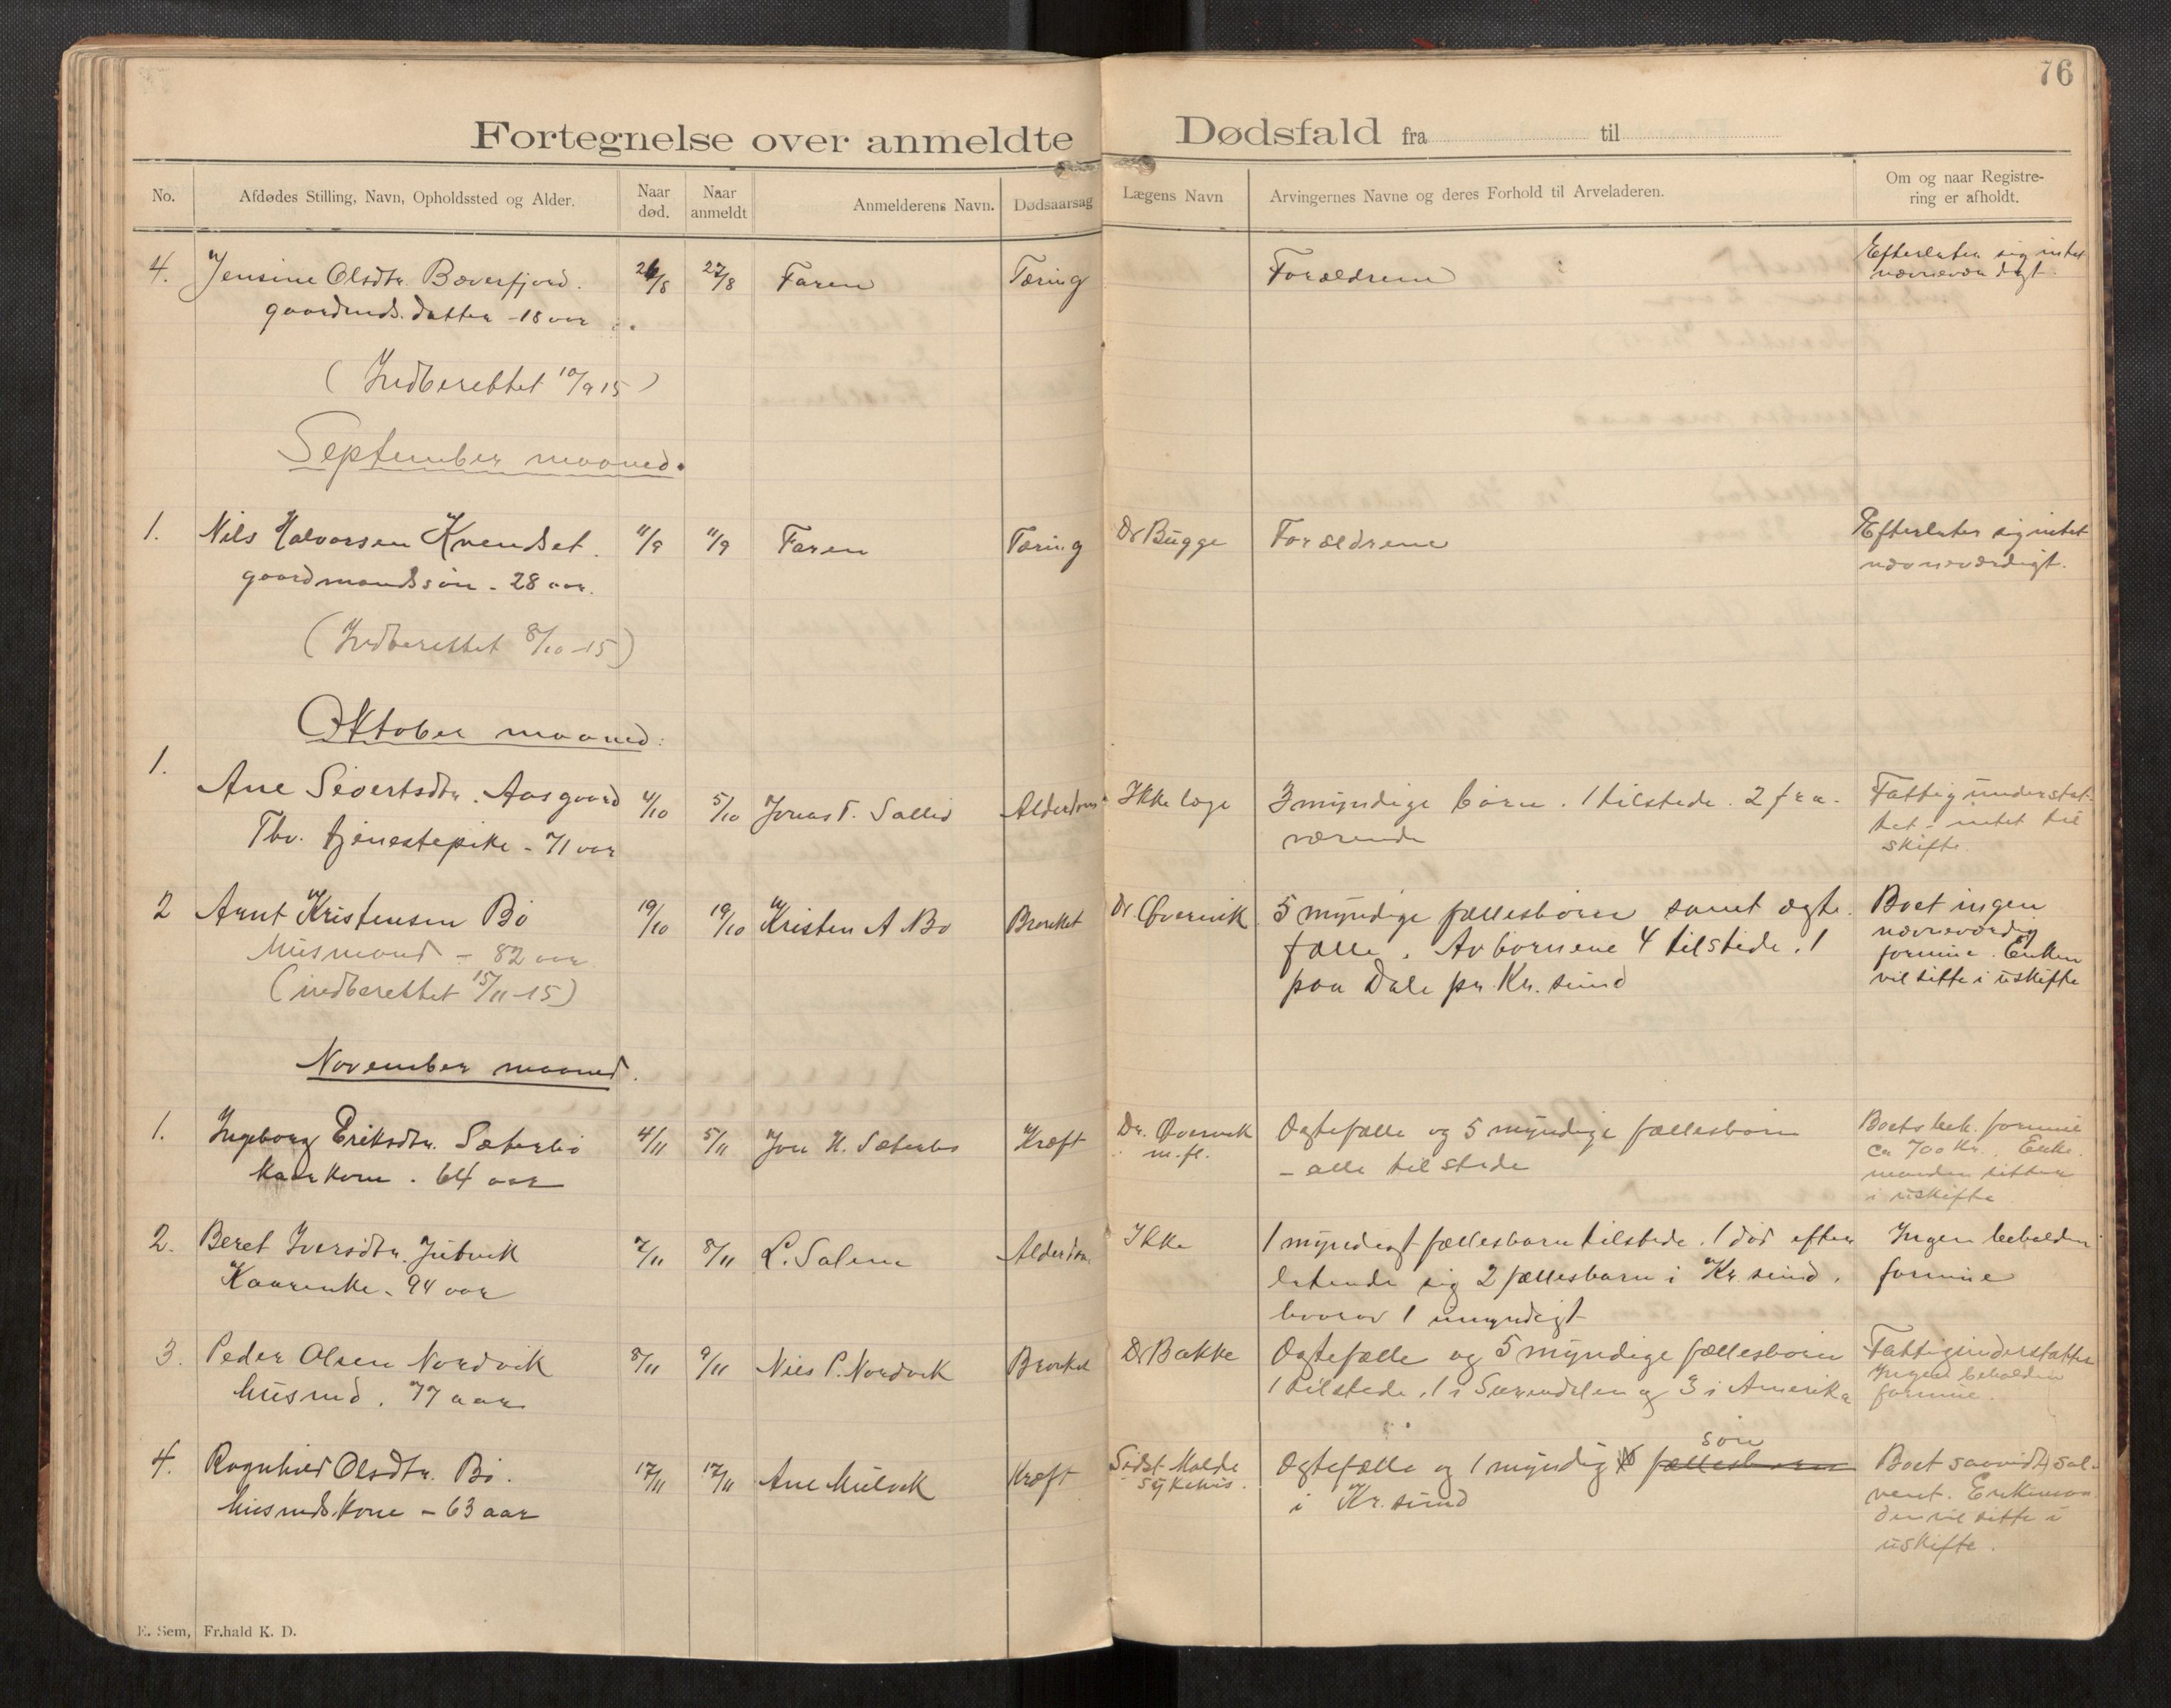 76
Fortegnelse over anmeldte Dødsfald fra til
No.
Afdødes Stilling, Navn, Opholdssted og Alder.
Naar død.
Naar anmeldt
Anmelderens Navn.
Dødsaarsag
Lægens Navn
Arvingernes Navne og deres Forhold til Arveladeren.
Om og naar Registre-
ring er afholdt.
4. Jensine Olsdtr. Bæverfjord. 26/8 27/8 Faren Tæring Forældrene Efterlater sig intet
gaardmds. datter - 18 aar nævneværdigt.
(Indberettet 10/9 15)
September maaned.
1. Nils Halvorsen Kvendset. 11/9 11/9 Faren Tæring Dr Bugge Forældrene Efterlater sig intet
gaardmandssøn - 28 aar. nævneværdigt.
(Indberettet 8/10-15)
Oktober maaned:
1.
Ane Sivertsdtr. Aasgaard 4/10 5/10 Jonas T. Sollid Alderdom Ikke læge 3 myndige børn. 1 tilstede. 2 fra- Fattigunderstøt-
Thv. tjenestepike - 71 aar værende tet - intet til
skifte.
2 Arnt Kristensen Bø 19/10 19/10 Kristen A Bø Bronkit Dr Øvervik 5 myndige fællesbørn samt ægte- Boet ingen
husmand - 82 aar fælle. Av børnene 4 tilstede. 1 nævneværdig
formue. Enken
(indberettet 15/11-15) paa Dale pr. Kr. sund vil sitte i uskifte
November maaned.
1. Ingeborg Eriksdtr. Sæterbø 4/11 5/11 Jon H. Sæterbø Kræft Dr. Øvervik Ægtefælle og 5 myndige fællesbørn Boets beh. formue
kaarkone. 64 aar m. fl. - alle tilstede ca 700 Kr. Enke-
manden sitter
i uskifte
2. Beret Iversdtr. Jutvik 7/11 8/11 L. Salen Alderdom Ikke 1 myndigt fællesbarn tilstede. 1 død efter- Ingen beholden
Kaarenke - 94 aar latende sig 2 fællesbarn i Kr. sund. formue
hvorav 1 umyndigt
3. Peder Olsen Nordvik 8/11 9/11 Nils P. Nordvik Bronkit Dr Bakke Ægtefælle og 5 myndige fællesbørn Fattigunderstøttet
husmd. 77 aar 1 tilstede. 1 i Surendalen og 3 i Amerika Ingen beholden
formue.
4. Ragnhild Olsdtr. Bø. 17/11 17/11 Ane Mulvik Kræft Sidst Molde Ægtefælle og 1 myndig fællesbarn søn Boet saavidt sol-
husmds kone - 63 aar sykehus. i Kr. sund vent. Enkeman-
den vil sitte i
uskifte.
E. Sem, Fr.hald K. D.